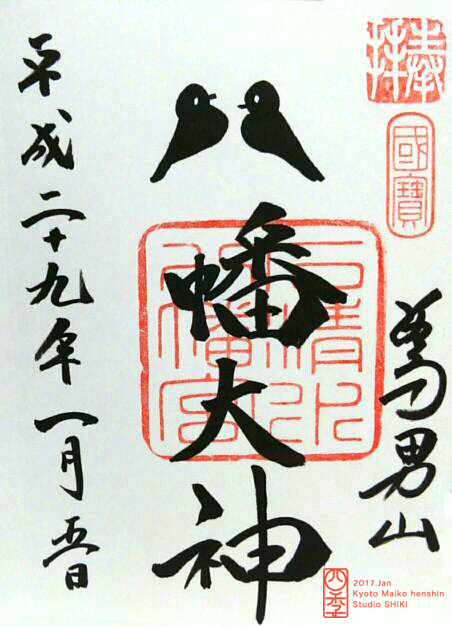 奉拝
國寶
男山
八幡大神
石清水八幡宮
平成二十九年一月五日
四季
2017.Jan
Kyoto Maiko henshin
Studio SHIKI